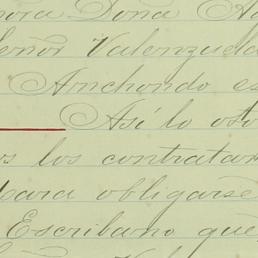 Doña
Señor Valenzuela
Anchondo es
Así lo oto
los contratan
para obligarse
Escribano que